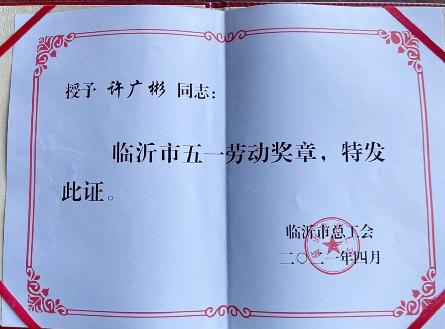 授予 许广彬 同志：
临沂市五一劳动奖章，特发
此证。
临沂市总工会
二〇二一年四月